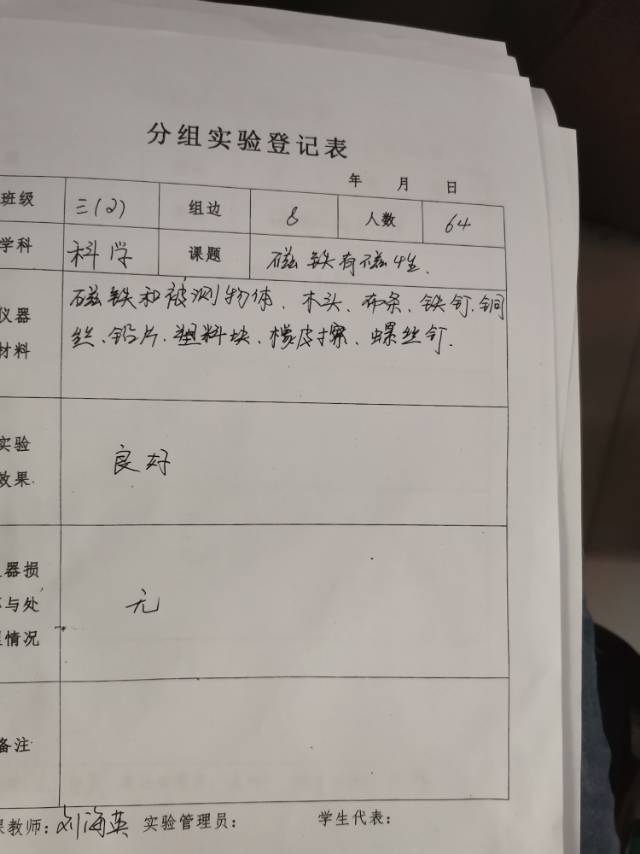 分组实验登记表
年 月 日
班级 三(2) 组边 8 人数 64
学科 科学 课题 磁铁有磁性.
仪器 磁铁和被测物体、木头、布条、铁钉、铜
材料 丝、铅片、塑料块、橡皮擦、螺丝钉.
实验
效果 良好
器损
与处 无
情况
备注
教师:刘海英 实验管理员: 学生代表: